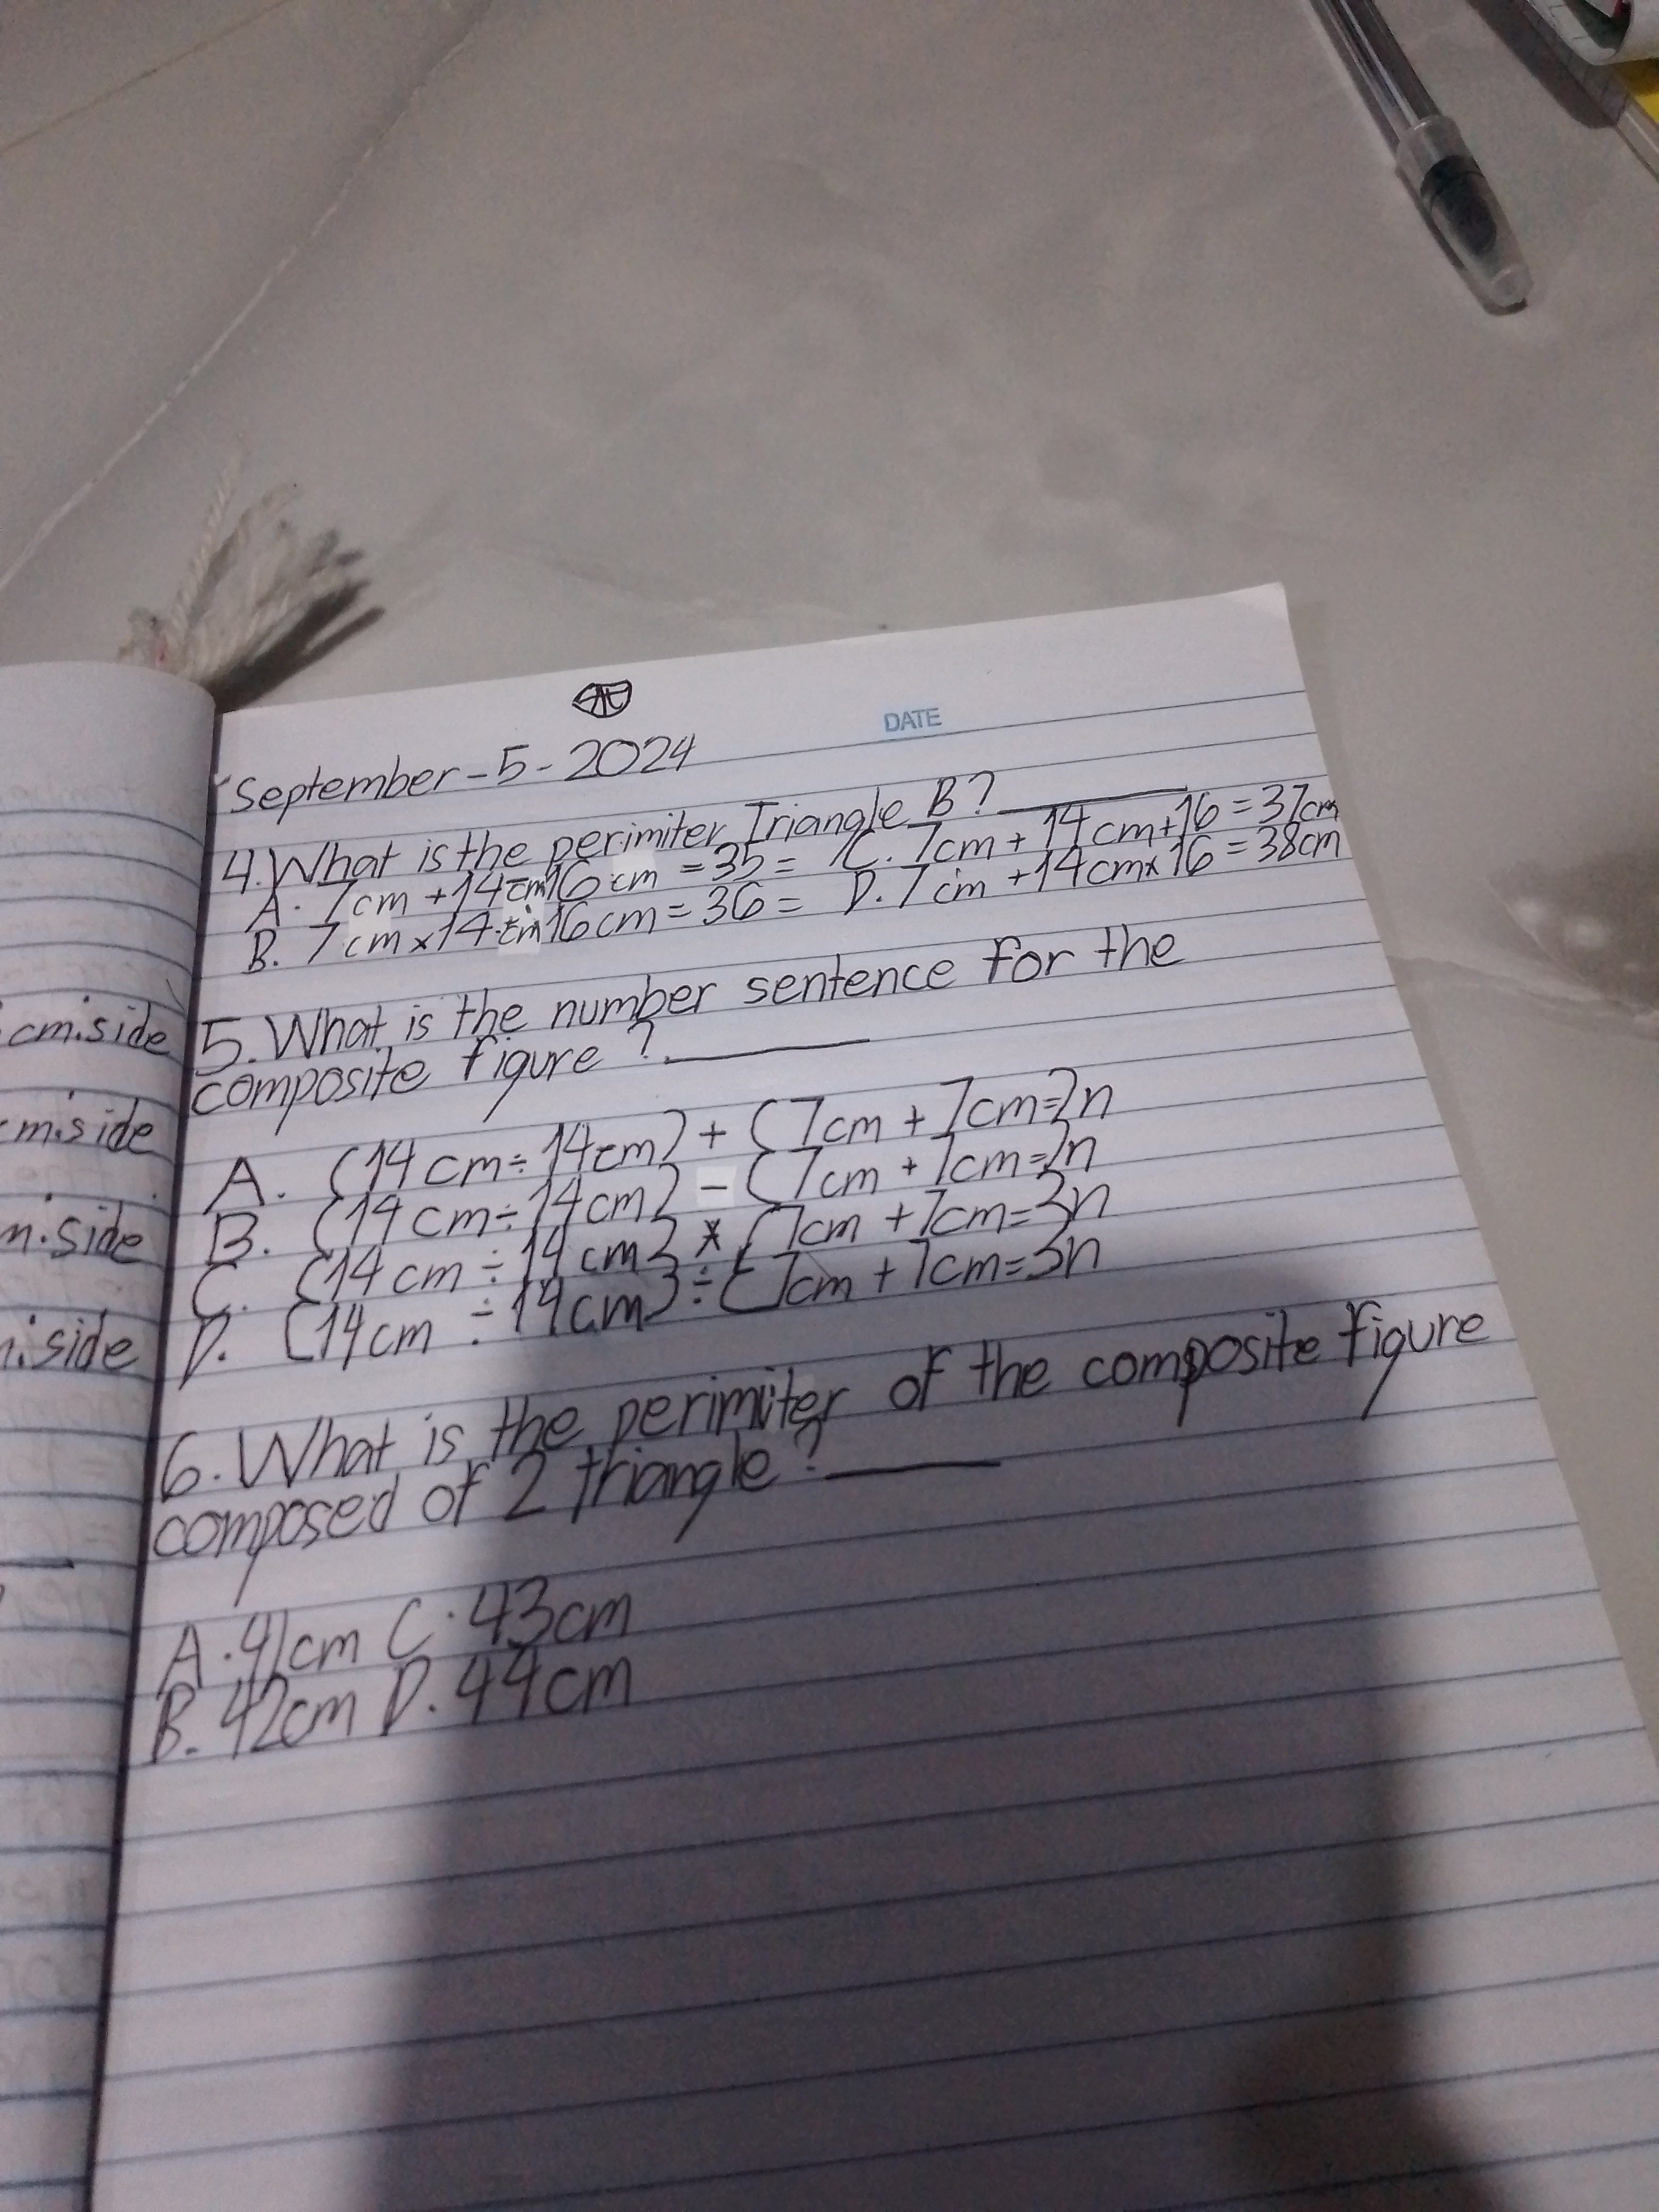 DATE
September-5-2024
4.What is the perimiter Triangle B?
A. 7cm +14cm16cm =35= C. 7cm + 14cm+16=37cm
B. 7cm x14cm16cm=36= D. 7cm +14cmx16=38cm
5.What is the number sentence for the
composite figure?
A. (14cm÷14cm)+(7cm+7cm=2n
B. (14cm÷14cm)-(7cm+7cm=2n
C. (14cm÷14cm) x (7cm+7cm=3n
D. (14cm÷14cm)÷(7cm+7cm=3n
6.What is the perimiter of the composite figure
composed of 2 triangle?
A.41cm C.43cm
B.42cm D.44cm
cm.side
m.side
m.side
.side